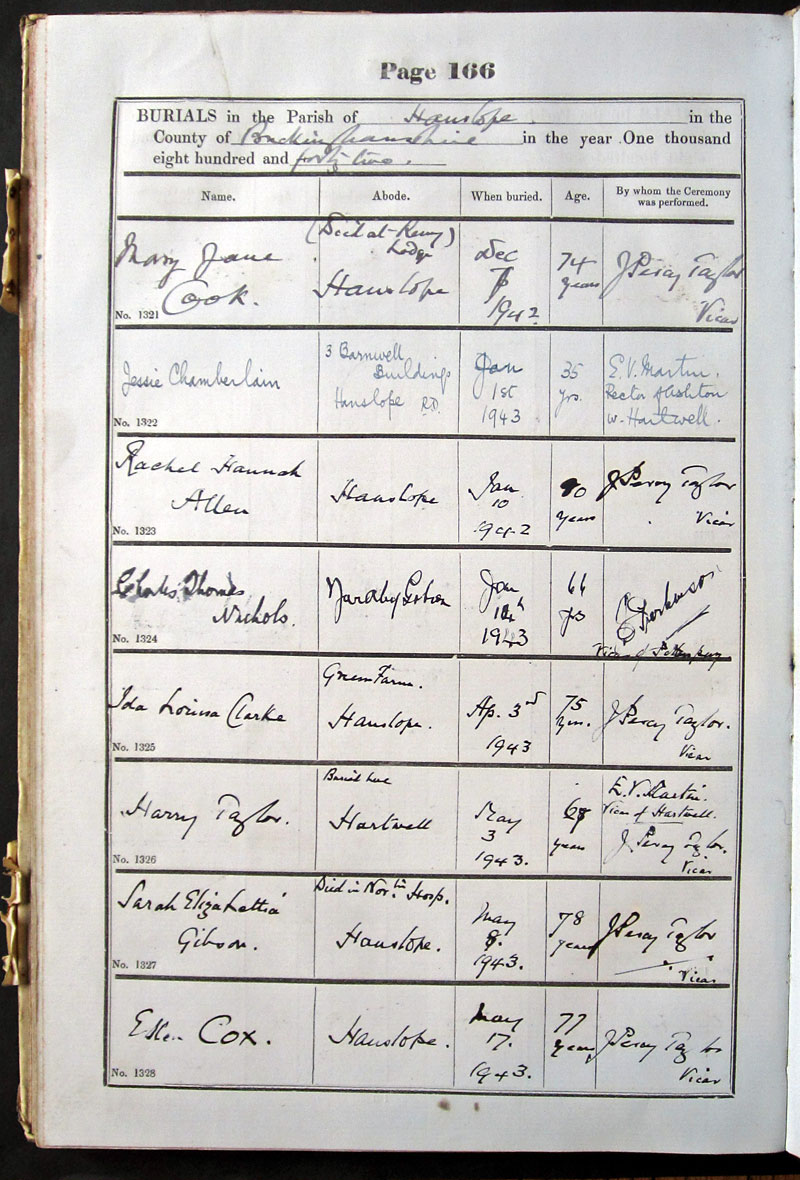 Page 166
BURIALS in the Parish of Hanslope in the
County of Buckinghamshire in the year One thousand
eight hundred and forty two.
Name. Abode. When buried. Age. By whom the Ceremony was performed.
Mary Jane
Cook.
No. 1321
(Died at
Lodge
Hanslope
Dec
7
1942
74
years
J Percy Taylor
Vicar
Jessie Chamberlain
No. 1322
3 Barnwell
Buildings
Hanslope RD.
Jan
1st
1943
35
yrs.
E.V. Martin.
Rector of Ashton
w. Hartwell.
Rachel Hannah
Allen
No. 1323
Hanslope
Jan
10
1942
90
years
J Percy Taylor
Vicar
Charles Thomas
Nichols.
No. 1324
Jan
1943
66
yrs
Vicar of
Ida Louisa Clarke
No. 1325
Green Farm.
Hanslope.
Ap. 3rd
1943
75
yrs.
J Percy Taylor.
Vicar
Harry Taylor.
No. 1326
Burial here
Hartwell
May
3
1943.
68
years
E.V. Martin.
Vicar of Hartwell.
J Percy Taylor.
Vicar
Sarah Elizabethia
Gibson.
No. 1327
Died in Nor.tn Hosp.
Hanslope.
May
8.
1943.
78
years
J Percy Taylor
Vicar
Ellen Cox.
No. 1328
Hanslope.
May
17.
1943.
77
years
J Percy Taylor
Vicar